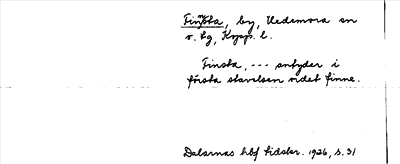 Finsbo, by, Hedemora sn
v. tg, Kopp. l.
Finsta, --- antyder i
första stavelsen ordet finne.
Dalarnas hbf tidskr. 1926, s. 31